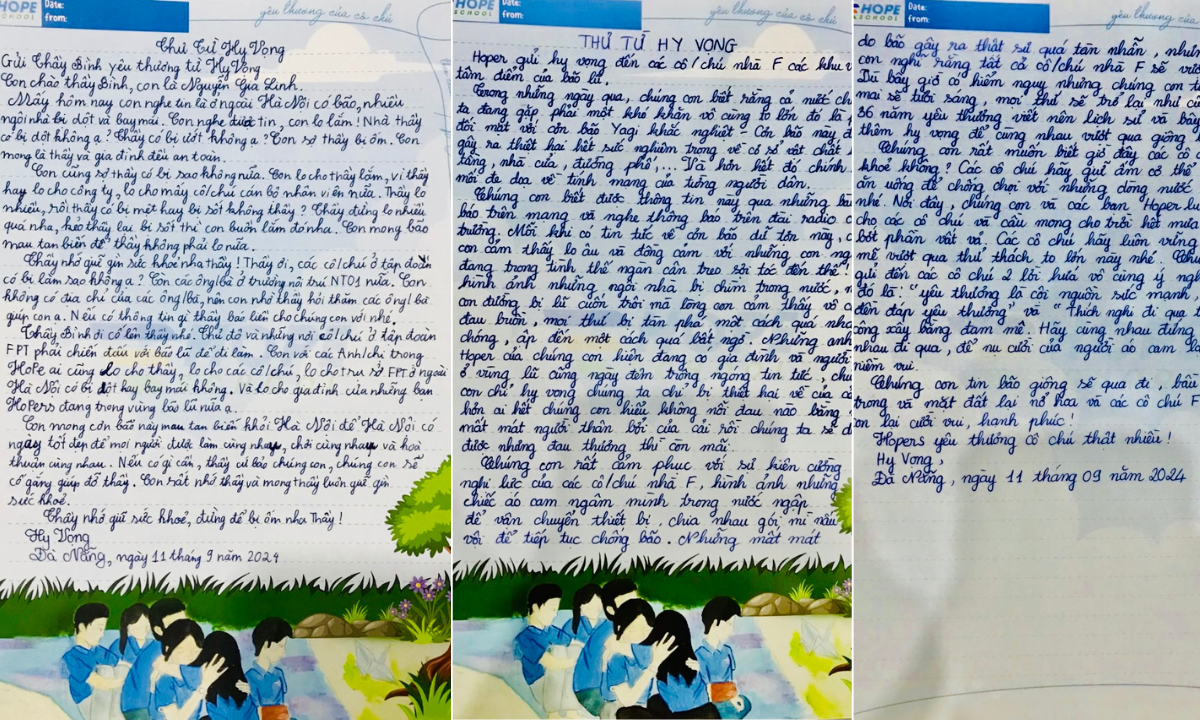 HOPE
SCHOOL
Date:
from:
yêu thương của cô chú
Thư Từ Hy Vọng
Gửi Thầy Bình yêu thương từ Hy Vọng
Con chào thầy Bình, con là Nguyễn Gia Linh.
Mấy hôm nay con nghe tin là ở ngoài Hà Nội có bão, nhiều
ngôi nhà bị dột và bay mái. Con nghe được tin, con lo lắm! Nhà thầy
có bị dột không ạ? Thầy có bị ướt không ạ? Con sợ thầy bị ốm. Con
mong là thầy và gia đình đều an toàn.
Con cũng sợ thầy có bị sao không nữa. Con lo cho thầy lắm, vì thầy
hay lo cho công ty, lo cho mấy cô/chú cán bộ nhân viên nữa. Thầy lo
nhiều, rồi thầy có bị mệt hay bị sốt không thầy? Thầy đừng lo nhiều
quá nha, kẻo thầy lại bị sốt thì con buồn lắm đó nha. Con mong bão
mau tan biến để thầy không phải lo nữa.
Thầy nhớ giữ gìn sức khoẻ nha thầy! Thầy ơi, các cô/chú ở tập đoàn
có bị làm sao không ạ? Còn các ông/bà ở trường nội trú NT01 nữa. Con
không có địa chỉ của các ông/bà, nên con nhờ thầy hỏi thăm các ông/bà
giúp con ạ. Nếu có thông tin gì thầy báo luôn cho chúng con với nhé.
Thầy Bình ơi cố lên thầy nhé. Thủ đô và những nơi cô/chú ở tập đoàn
FPT phải chiến đấu với bão lũ để đi làm. Con với các Anh/chị trong
HoPe ai cũng lo cho thầy, lo cho các cô/chú, lo cho trụ sở FPT ở ngoài
Hà Nội có bị dột hay bay mái không. Và lo cho gia đình của những bạn
HoPers đang trong vùng bão lũ nữa ạ.
Con mong cơn bão này mau tan biến khỏi Hà Nội để Hà Nội có
ngày tốt đẹp để mọi người được làm cùng nhau, chơi cùng nhau và hoà
thuận cùng nhau. Nếu có gì cần, thầy cứ bảo chúng con, chúng con sẽ
cố gắng giúp đỡ thầy. Con rất nhớ thầy và mong thầy luôn giữ gìn
sức khoẻ.
Thầy nhớ giữ sức khoẻ, đừng để bị ốm nha Thầy!
Hy Vọng
Đà Nẵng, ngày 11 tháng 9 năm 2024
HOPE
SCHOOL
Date:
from:
yêu thương của cô chú
THƯ TỪ HY VỌNG
Hoper gửi hy vọng đến các cô/chú nhà F các khu v
tâm điểm của bão lũ.
Trong những ngày qua, chúng con biết rằng cả nước ch
ta đang gặp phải một khó khăn vô cùng to lớn đó là p
đối mặt với cơn bão Yagi khắc nghiệt. Cơn bão này đ
gây ra thiệt hại hết sức nghiêm trọng về cơ sở vật chất h
tầng, nhà cửa, đường phố,... Và hơn hết đó chính
mối đe doạ về tính mạng của từng người dân.
Chúng con biết được thông tin này qua những bài
báo trên mạng và nghe thông báo trên đài radio c
trường. Mỗi khi có tin tức về cơn bão dữ tợn này, c
con cảm thấy lo âu và đồng cảm với những con ng
đang trong tình thế ngàn cân treo sợi tóc đến thế
hình ảnh những ngôi nhà bị chìm trong nước, n
con đường bị lũ cuốn trôi mà lòng con cảm thấy vô c
đau buồn, mọi thứ bị tàn phá một cách quá nhan
chóng, ập đến một cách quá bất ngờ. Những anh
Hoper của chúng con hiện đang có gia đình và người
ở vùng lũ cũng ngày đêm trong ngóng tin tức, chú
con chỉ hy vọng chúng ta chỉ bị thiệt hại về của cả
hơn ai hết chúng con hiểu không nỗi đau nào bằng
mất mát người thân bởi của cải rồi chúng ta sẽ d
được nhưng đau thương thì còn mãi.
Chúng con rất cảm phục với sự kiên cường
nghị lực của các cô/chú nhà F, hình ảnh những
chiếc áo cam ngâm mình trong nước ngập
để vận chuyển thiết bị, chia nhau gói mì nấu
vội để tiếp tục chống bão. Những mất mát
HOPE
SCHOOL
Date:
from:
yêu thương của cô chú
do bão gây ra thật sự quá tàn nhẫn, nhưn
con nghĩ rằng tất cả cô/chú nhà F sẽ vượ
Dù bây giờ có hiểm nguy nhưng chúng con t
mai sẽ tươi sáng, mọi thứ sẽ trở lại như c
36 năm yêu thương viết nên lịch sử và bây
thêm hy vọng để cùng nhau vượt qua giông
Chúng con rất muốn biết giờ đây các cô c
khoẻ không? Các cô chú hãy giữ ấm cơ thể
ăn uống để chống chọi với những dòng nước
nhé. Nơi đây, chúng con và các bạn Hoper lu
cho các cô chú và cầu mong cho trời hết mưa
bớt phần vất vả. Các cô chú hãy luôn vững
mẽ vượt qua thử thách to lớn này nhé. Chú
gửi đến các cô chú 2 lời hứa vô cùng ý ngh
đó là: "yêu thương là cội nguồn sức mạnh
đền đáp yêu thương" và "Thích nghi đi qua t
công xây bằng đam mê. Hãy cùng nhau đứng
nhau đi qua, để nụ cười của người áo cam là
niềm vui.
Chúng con tin bão giông sẽ qua đi, bầu
trong và mặt đất lại nở hoa và các cô chú F
lại cười vui, hạnh phúc!
Hopers yêu thương cô chú thật nhiều!
Hy Vọng,
Đà Nẵng, ngày 11 tháng 09 năm 2024